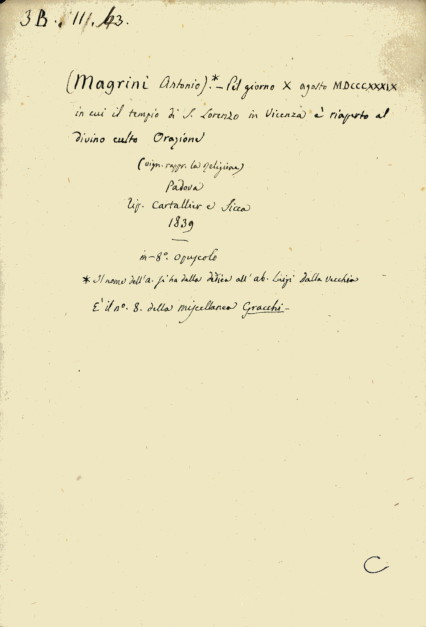 3 B. III. 43.
(Magrini Antonio).* – Pel giorno X agosto MDCCCXXXIX
in cui il tempio di S. Lorenzo in Vicenza è riaperto al
divino culto Orazione
(vign. rappr. la Religione)
Padova
Tip. Cartallier e Sicca
1839
in-8° opuscolo
* Il nome dell'a. si ha dalla dedica all' ab. Luigi dalla Vecchia
E' il n°. 8. della miscellanea Gracchi –
C